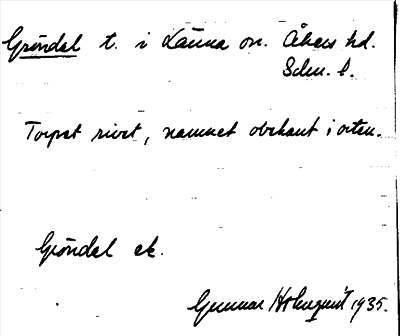 Gröndal t. i Länna sn. Åkers hd.
Sdm. l.
Torpet rivet, namnet obekant i orten.
Gröndal ek.
Gunnar Holmquist 1935.